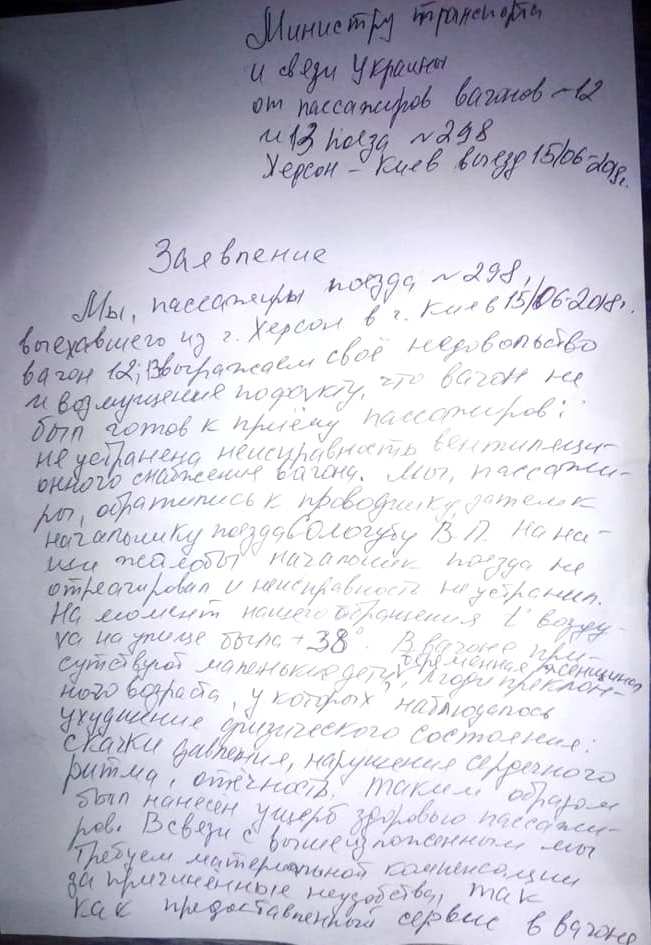 Министру транспорта
и связи Украины
от пассажиров вагонов ~12
и 13 поезда ~298
Херсон – Киев выезд 15/06-2018г.
Заявление
Мы, пассажиры поезда ~298,
выехавшего из г. Херсон в г. Киев 15/06-2018г.
вагон 12; 13 выражаем своё недовольство
и возмущение по факту, что вагон не
был готов к приёму пассажиров:
не устранена неисправность вентиляци-
онного снабжения вагона. Мы, пассажи-
ры, обратились к проводнику, затем к
начальнику поезда Сологубу В.П. На на-
ши жалобы начальник поезда не
отреагировал и неисправность не устранил.
На момент нашего обращения t° возду-
ха на улице была +38°. В вагоне при-
сутствуют маленькие дети, беременная женщина,
люди преклон-
ного возраста, у которых наблюдалось
ухудшение физического состояния:
скачки давления, нарушения сердечного
ритма, отёчность. Таким образом
был нанесен ущерб здоровью пассажи-
ров. В связи с вышеизложенным мы
требуем материальной компенсации
за причинённые неудобства, так
как предоставленный сервис в вагоне